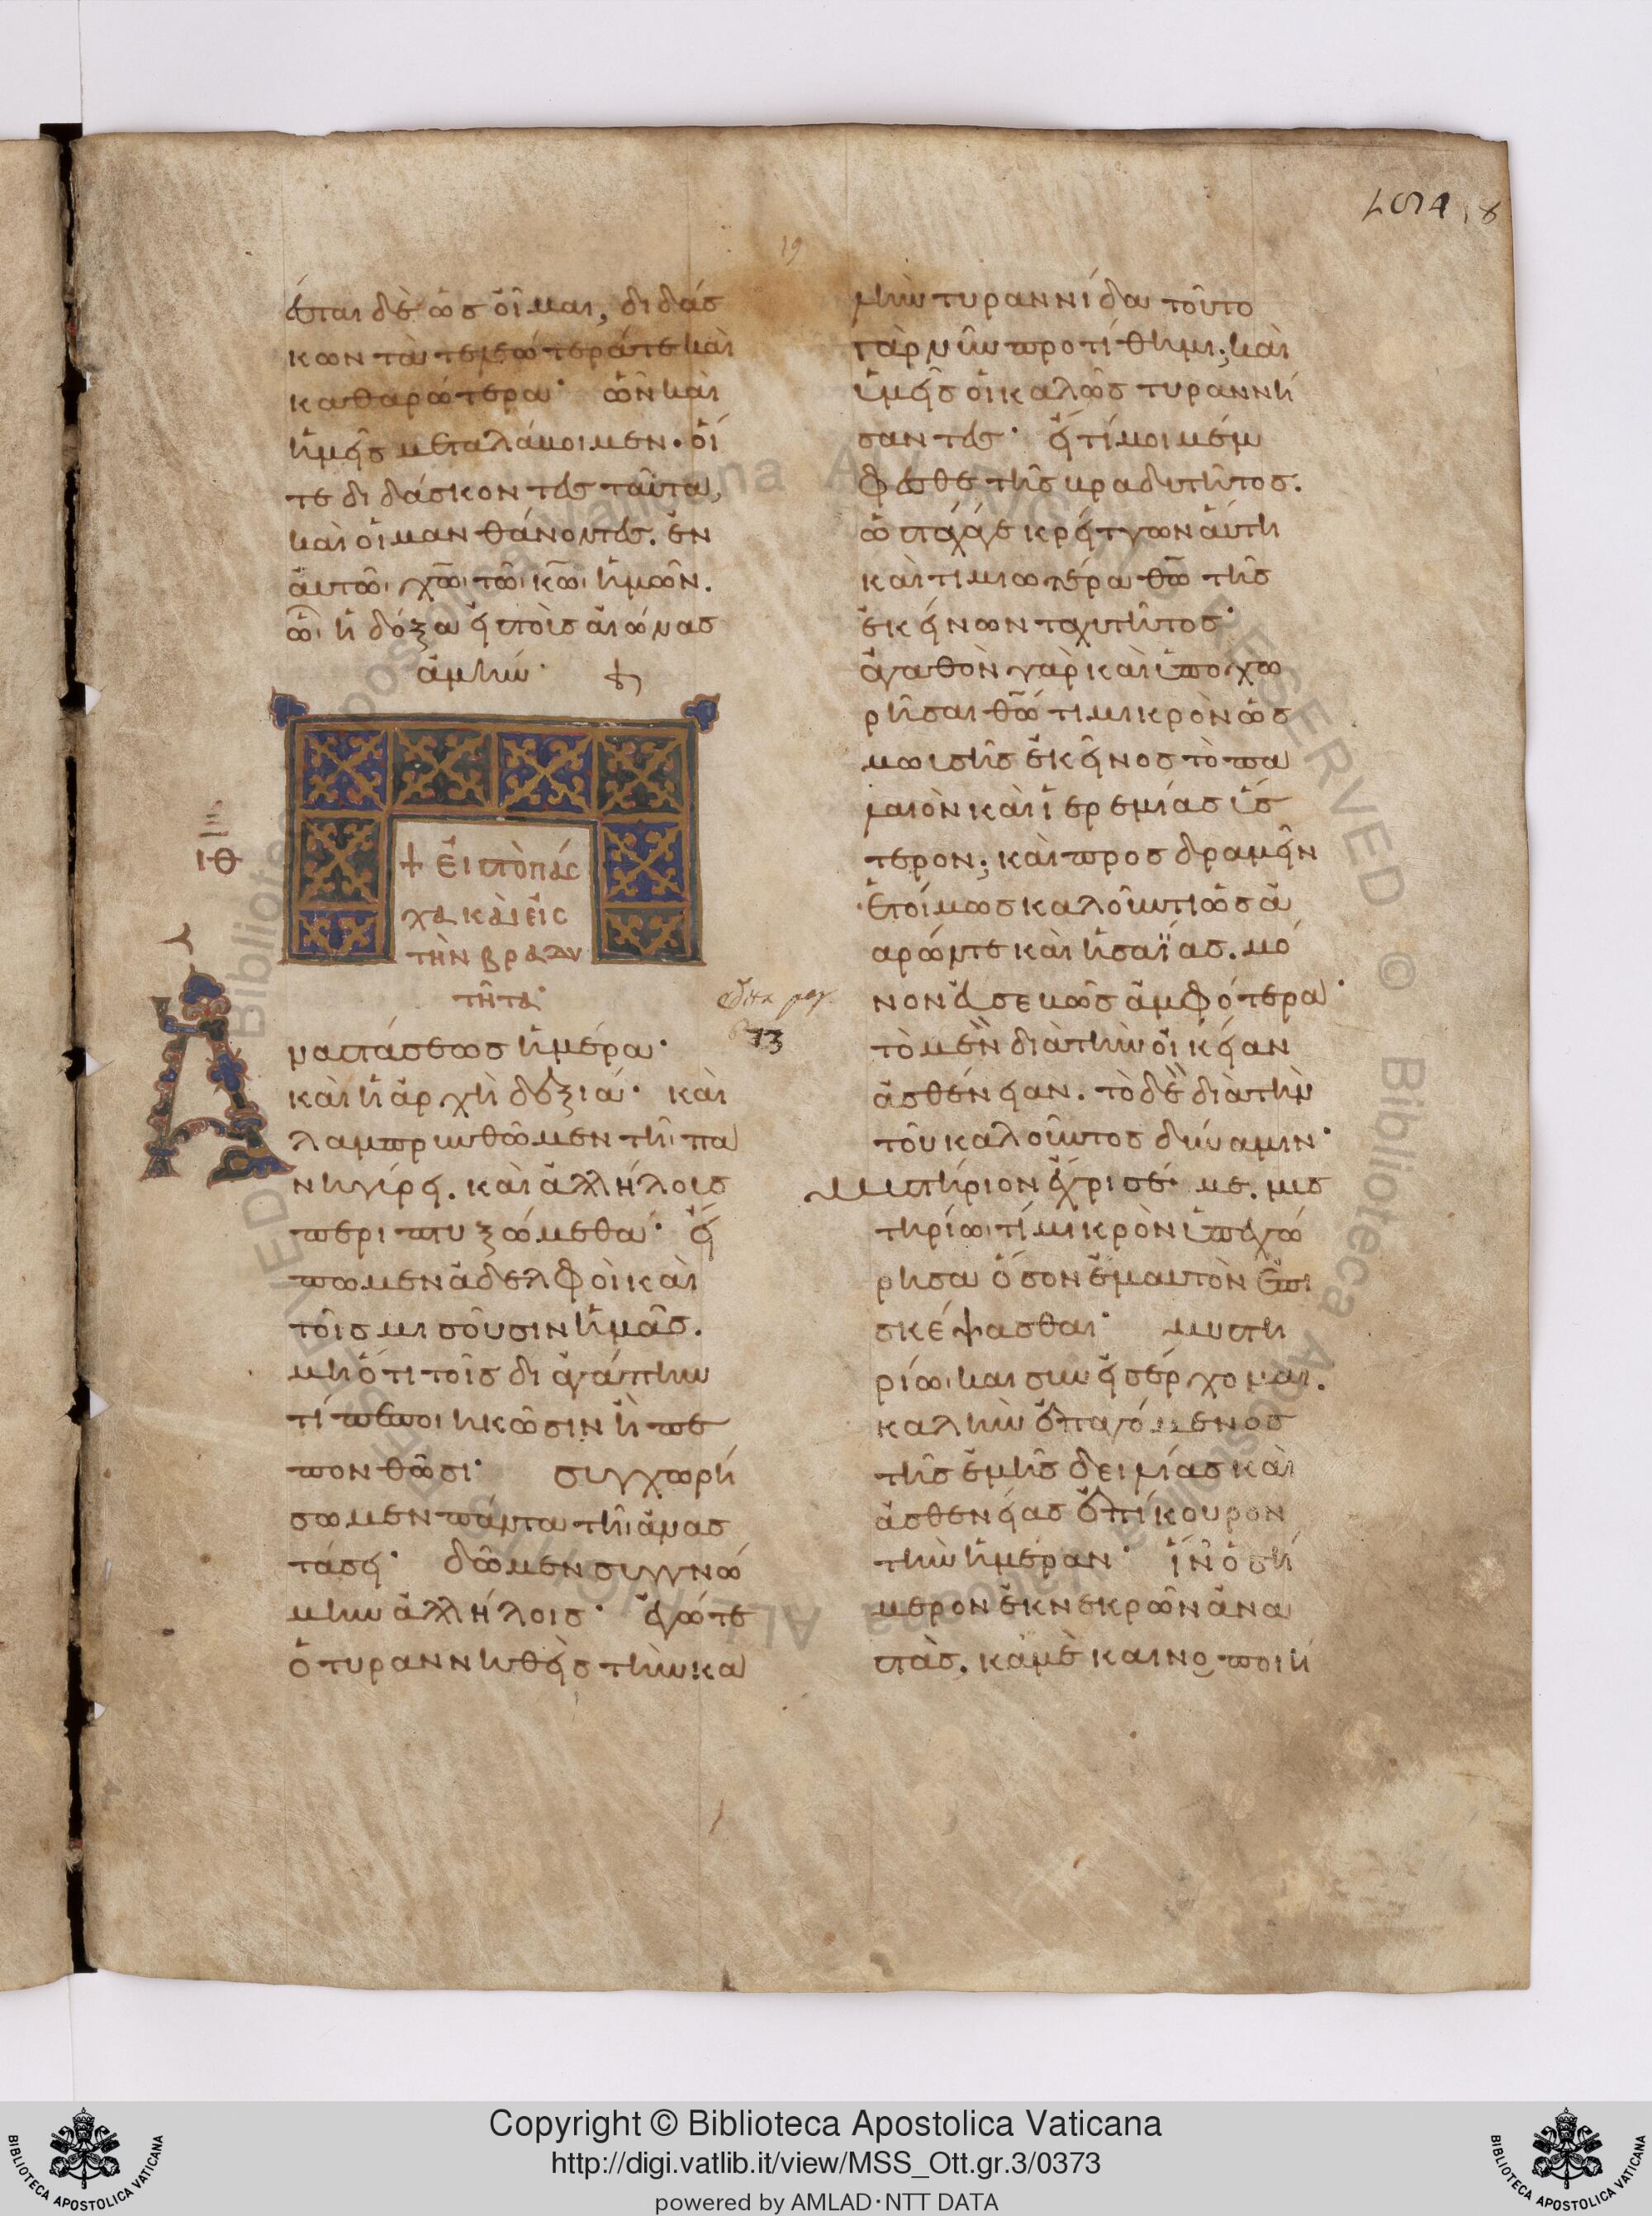 ἔσται δὲ ὡς οἶμαι, διδάσ
κων τὰ τελεώτερά τε καὶ
καθαρώτερα· ὧν καὶ
ἡμεῖς μεταλάβοιμεν. οἵ
τε διδάσκοντες ταῦτα,
καὶ οἱ μανθάνοντες. ἐν
αὐτῶ χω τῶ κω ἡμῶν.
ὧ ἡ δόξα εἰς τοὺς αἰώνας
ἀμήν·
ιθ
+ Εἰς τὸ πάσ
χα καὶ εἰς
τὴν βραδυ
τῆτα·
Α
ναστάσεως ἡμέρα·
καὶ ἡ ἀρχὴ δεξιά· καὶ
λαμπρυνθῶμεν τῆ πα
νηγύρει. καὶ ἀλλήλοις
περιπτυξώμεθα· εἴ
πωμεν ἀδελφοὶ καὶ
τοῖς μισοῦσιν ἡμᾶς.
μὴ ὅτι τοῖς δι ἀγάπην
τί πεποιηκῶσιν ἢ πε
πονθῶσι· συγχωρή
σωμεν πάντα τῆ ἀνασ
τάσει· δῶμεν συγγνώ
μην ἀλλήλοις· ἐγώ τε
ὁ τυραννηθεὶς τὴν κα
λὴν τυραννίδα τοῦτο
γὰρ νῦν προτίθημι; καὶ
ὑμεῖς οἱ καλῶς τυραννή
σαντες· εἴ τί μοι μέμ
φεσθε τῆς βραδυτῆτος.
ὡς τάχα γε κρείττων αὕτη
καὶ τιμιωτέρα θω τῆς
ἐκείνων ταχυτῆτος·
ἀγαθὸν γὰρ καὶ ὑποχω
ρῆσαι θῶ τι μικρὸν ὡς
μωυσῆς ἐκεῖνος τὸ πα
λαιὸν καὶ ἱερεμίας ὕσ
τερον; καὶ προσδραμεῖν
ἑτοίμως καλοῦντι ὡς ἀ
αρών τε καὶ ἡσαΐας. μό
νον εὐσεβῶς ἀμφότερα·
τὸ μὲν διὰ τὴν οἰκείαν
ἀσθένειαν. τὸ δὲ διὰ τὴν
τοῦ καλοῦντος δύναμιν·
Μυστήριον ἔχρισέ με. μυσ
τηρίω τί μικρὸν ὑπεχώ
ρησα ὅσον ἐμαυτὸν ἐπι
σκέψασθαι· μυστη
ρίω καὶ συνεισέρχομαι.
καλὴν ἐπαγόμενος
τῆς ἐμῆς δειλίας καὶ
ἀσθενείας ἐπίκουρον
τὴν ἡμέραν· ἵν ὁ σή
μερον ἐκ νεκρῶν ἀνα
στὰς, κἀμὲ καινοποιή
Copyright © Biblioteca Apostolica Vaticana
http://digi.vatlib.it/view/MSS_Ott.gr.3/0373
powered by AMLAD·NTT DATA
BIBLIOTECA APOSTOLICA VATICANA
BIBLIOTECA APOSTOLICA VATICANA